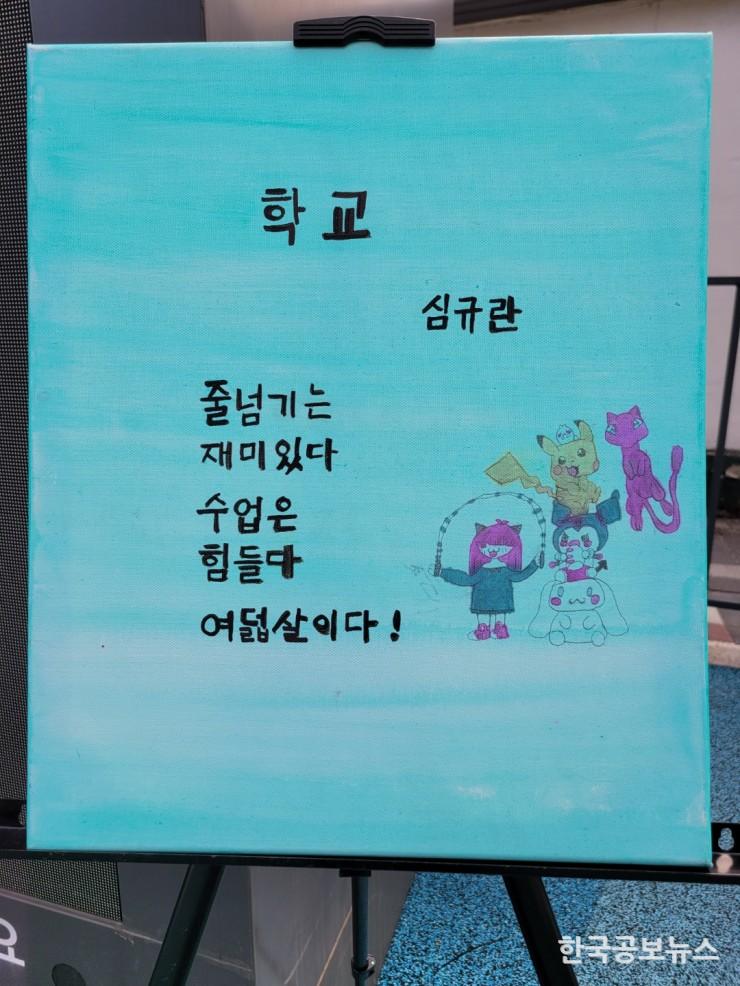 학교
심규란
줄넘기는
재미있다
수업은
힘들다
여덟살이다!
한국공보뉴스